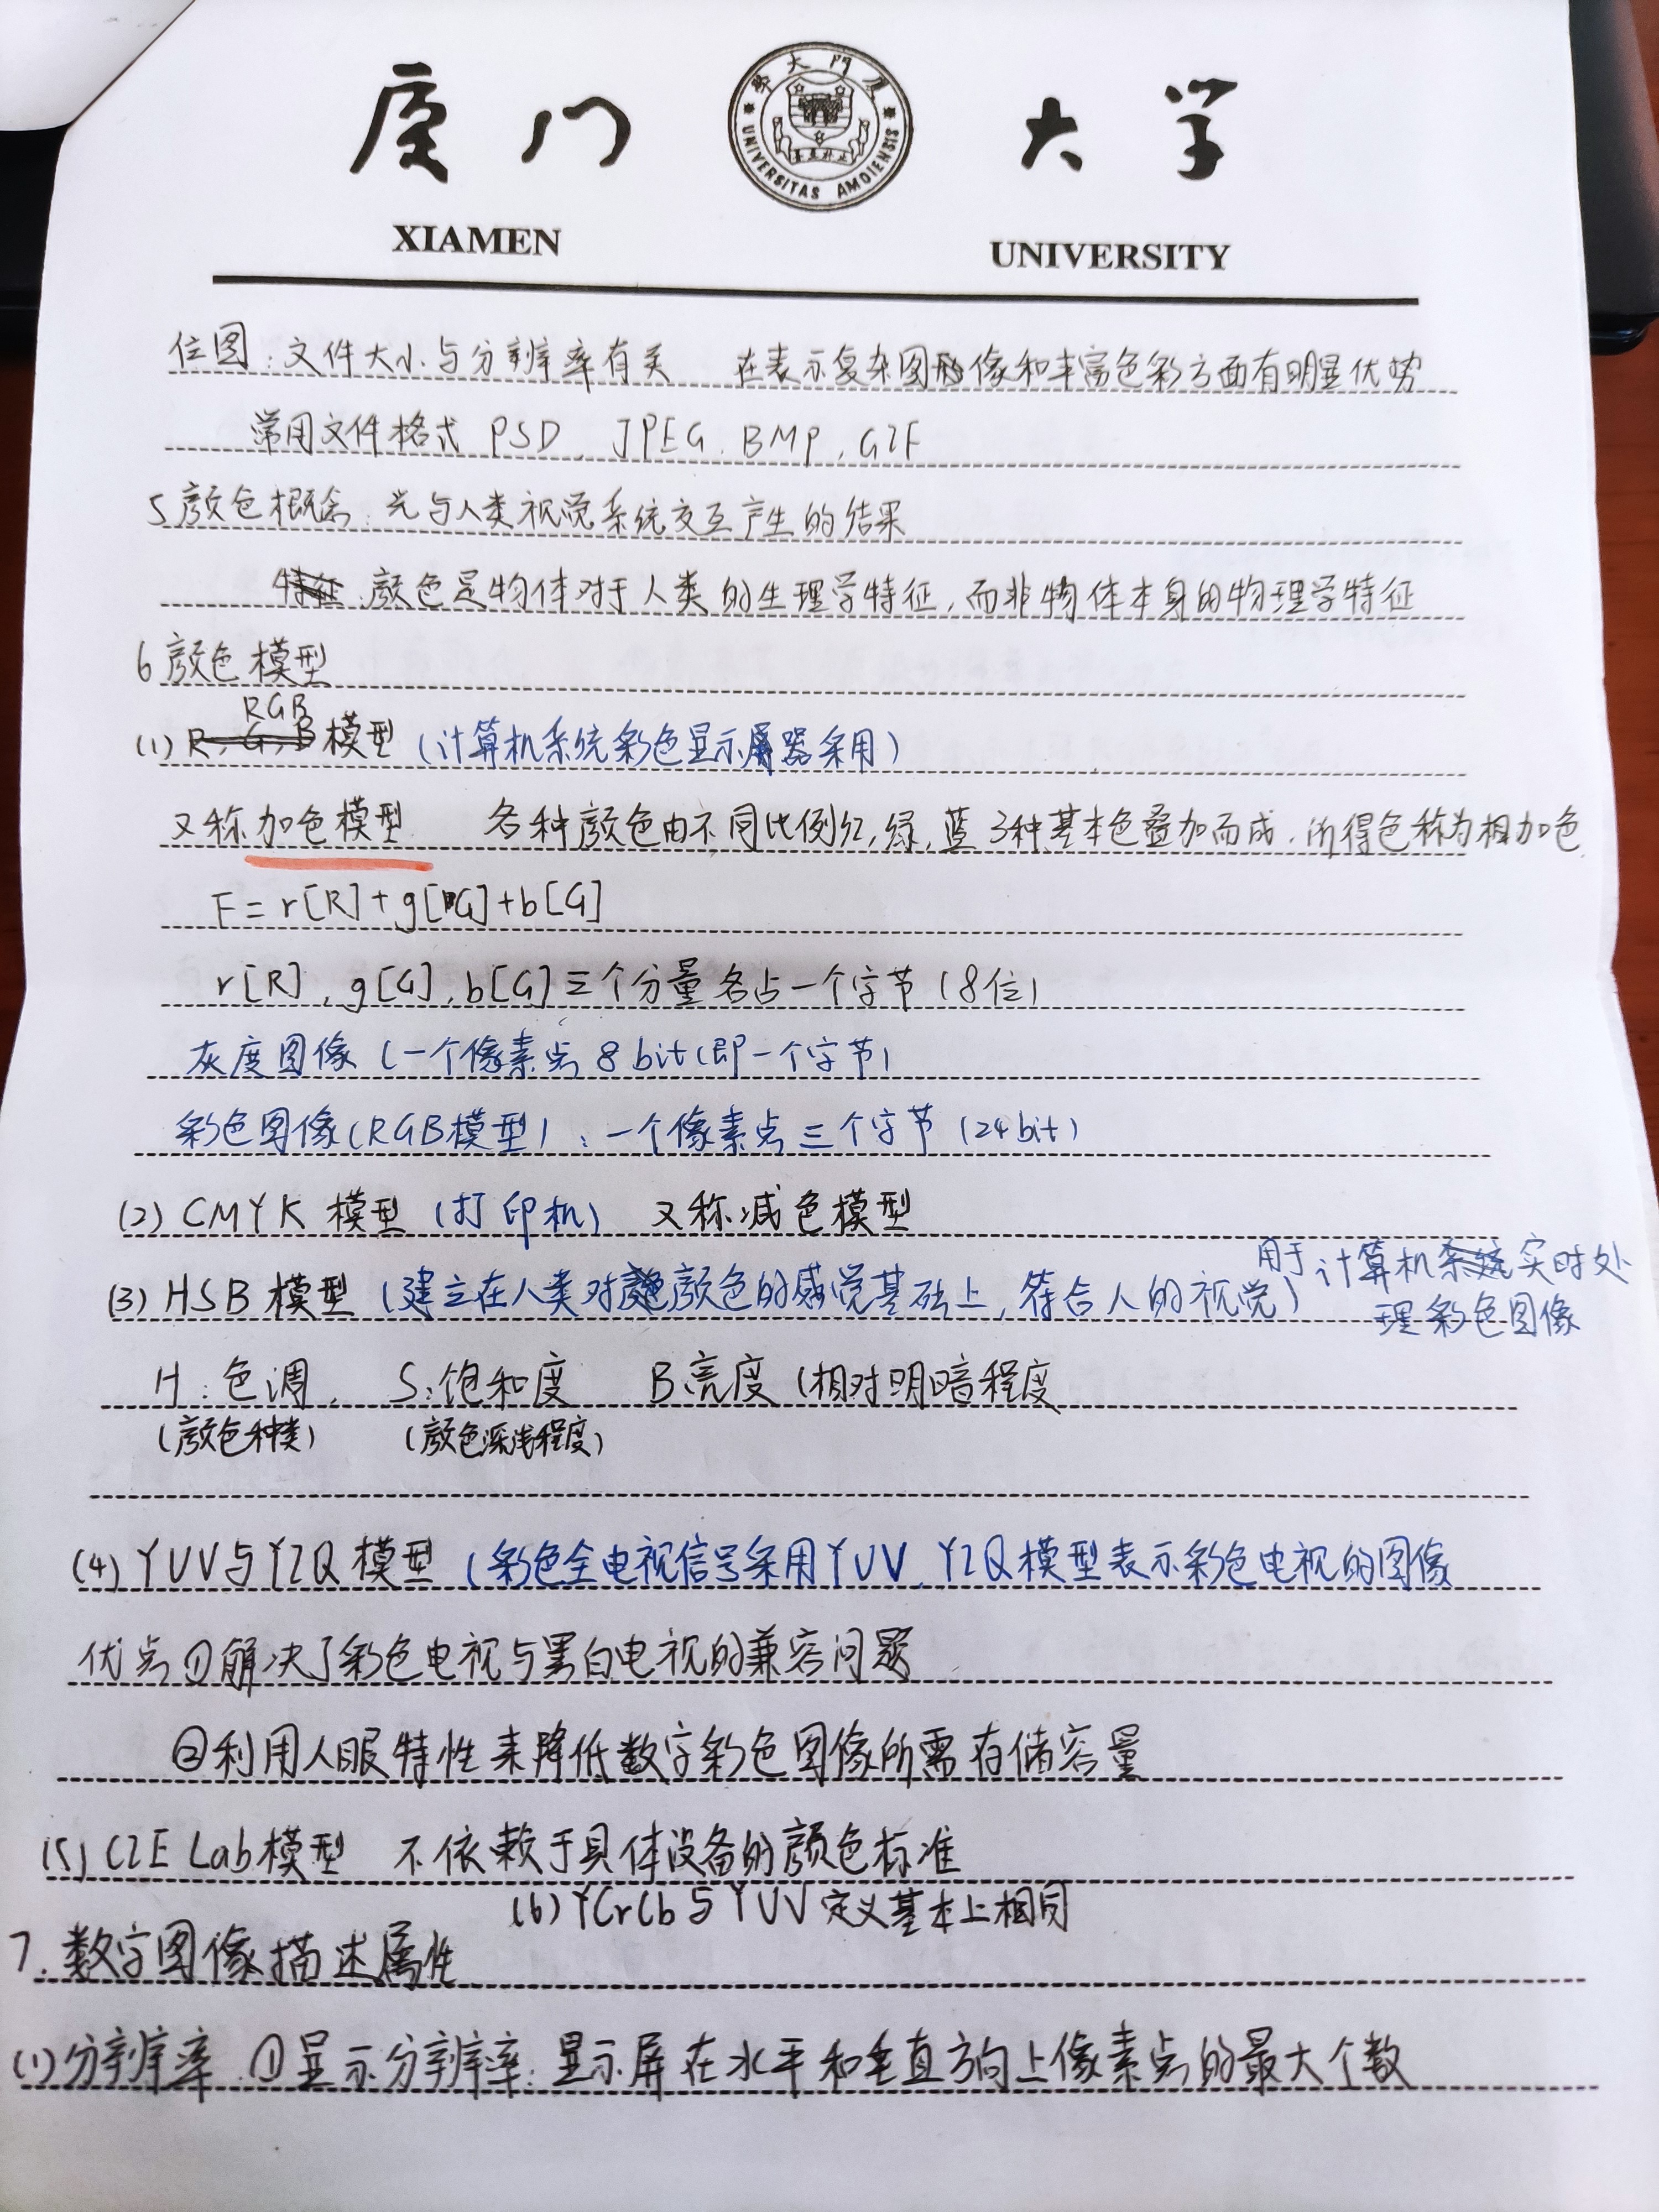 厦门大学
學大門厦
UNIVERSITAS AMOIENSIS
XIAMEN UNIVERSITY
位图:文件大小与分辨率有关 在表示复杂图像和丰富色彩方面有明显优势
常用文件格式 PSD、JPEG、BMP、GIF
5 颜色概念:光与人类视觉系统交互产生的结果
特征:颜色是物体对于人类的生理学特征,而非物体本身的物理学特征
6 颜色模型
RGB
(1) R、G、B模型(计算机系统彩色显示器采用)
又称加色模型 各种颜色由不同比例红,绿,蓝3种基本色叠加而成,所得色称为相加色
F=r[R]+g[G]+b[G]
r[R],g[G],b[G]三个分量各占一个字节(8位)
灰度图像(一个像素点8bit(即一个字节)
彩色图像(RGB模型):一个像素点三个字节(24bit)
(2) CMYK模型(打印机) 又称减色模型
(3) HSB模型(建立在人类对颜色的感觉基础上,符合人的视觉)用于计算机系统实时处
理彩色图像
H:色调, S:饱和度 B亮度(相对明暗程度
(颜色种类) (颜色深浅程度)
(4) YUV与YIQ模型(彩色全电视信号采用YUV、YIQ模型表示彩色电视的图像
优点①解决了彩色电视与黑白电视的兼容问题
②利用人眼特性来降低数字彩色图像所需存储容量
(5) CIE Lab模型 不依赖于具体设备的颜色标准
(6) YCrCb与YUV定义基本上相同
7.数字图像描述属性
(1)分辨率 ①显示分辨率:显示屏在水平和垂直方向上像素点的最大个数